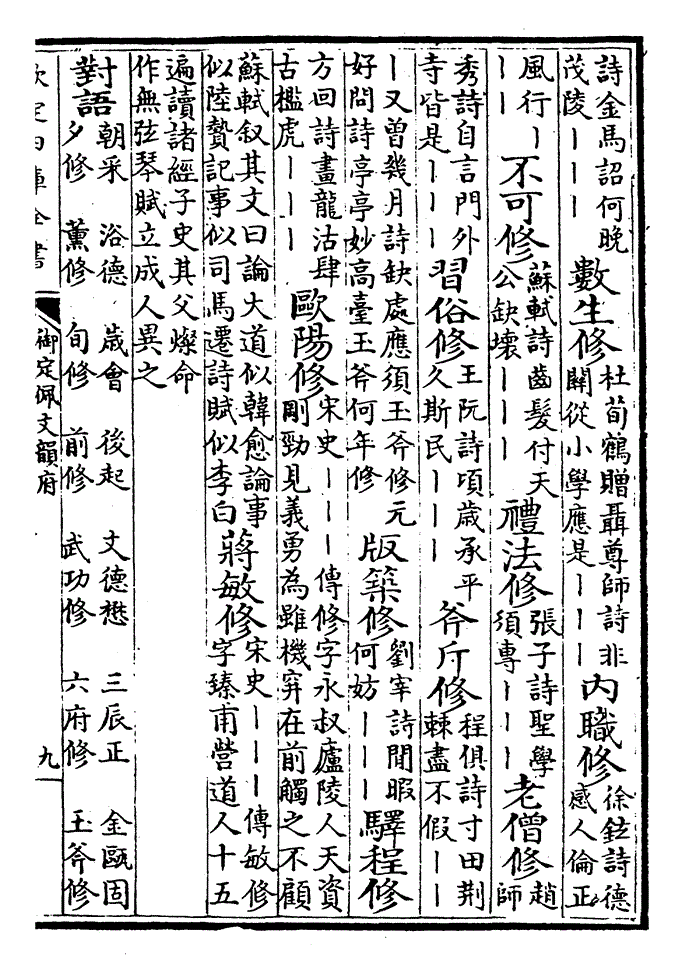 詩金馬詔何晚茂陵｜｜｜數生修杜荀鶴贈聶尊師詩非關從小學應是｜｜｜內職修徐鉉詩德感人倫正
風行｜｜｜不可修蘇軾詩齒髮付天公缺壞｜｜｜禮法修張子詩聖學須專｜｜｜老僧修趙師
秀詩自言門外寺皆是｜｜｜習俗修王阮詩頃歳承平久斯民｜｜｜斧斤修程俱詩寸田荆棘盡不假｜｜
｜又曽幾月詩缺處應須玉斧修元好問詩亭亭妙高臺玉斧何年修版築修劉宰詩閒暇何妨｜｜｜驛程修
方回詩畫龍沽肆古檻虎｜｜｜歐陽修宋史｜｜｜傳修字永叔廬陵人天資剛勁見義勇為雖機穽在前觸之不顧
蘇軾叙其文曰論大道似韓愈論事似陸贄記事似司馬遷詩賦似李白蔣敏修宋史｜｜｜傳敏修字臻甫營道人十五
遍讀諸經子史其父燦命作無弦琴賦立成人異之
對語朝采 浴德 歳會 後起 文德懋 三辰正 金甌固
夕修 薰修 旬修 前修 武功修 六府修 玉斧修
欽定四庫全書 御定佩文韻府 九